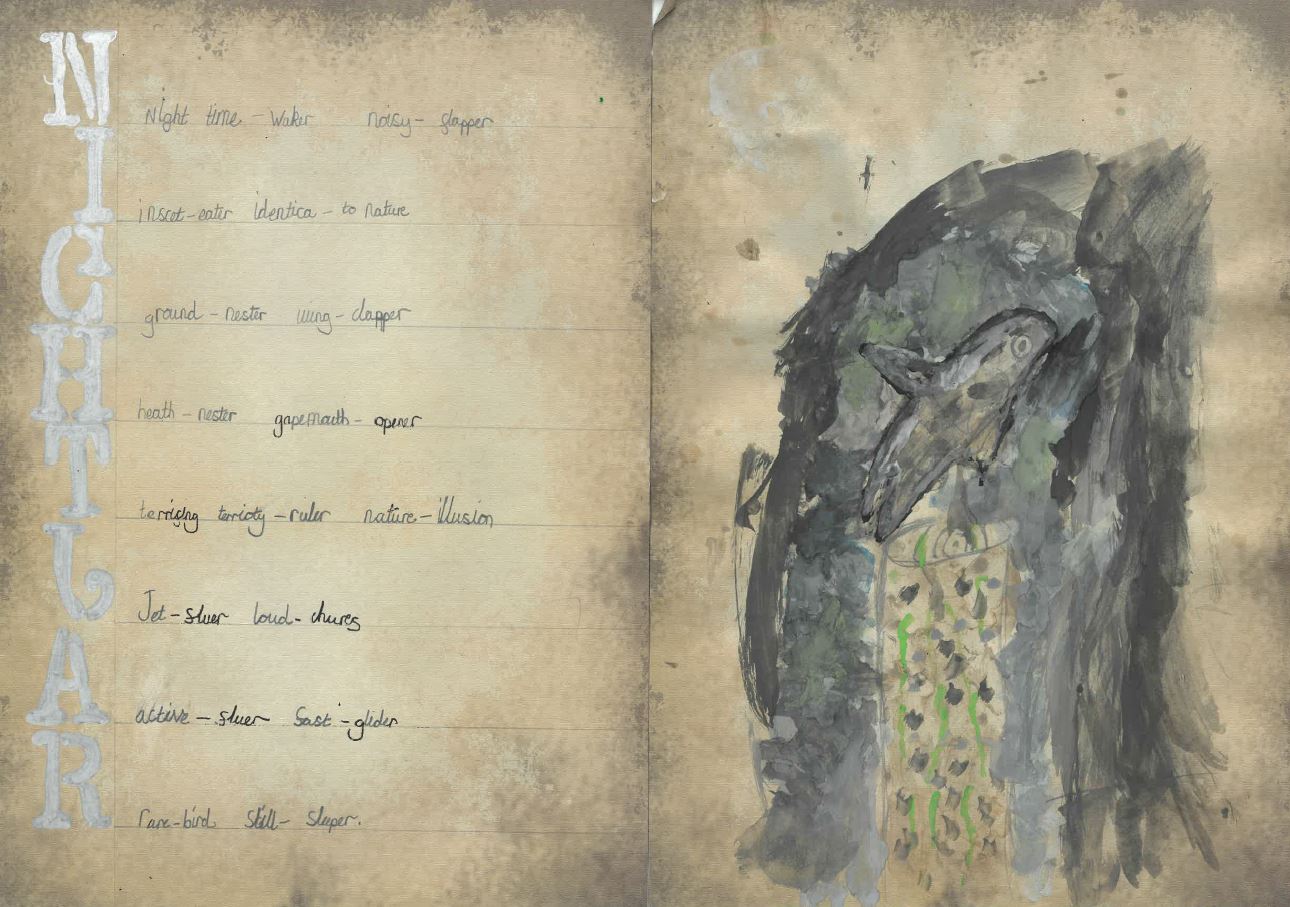 NIGHTJAR
Night time - waker noisy - slapper
inscet-eater identica - to nature
ground - nester wing - clapper
heath - nester gapemouth - opener
terrifing terrioty - ruler nature - illusion
Jet - sluer loud - chures
active - sluer fast - glider
rare-bird still - slaper.